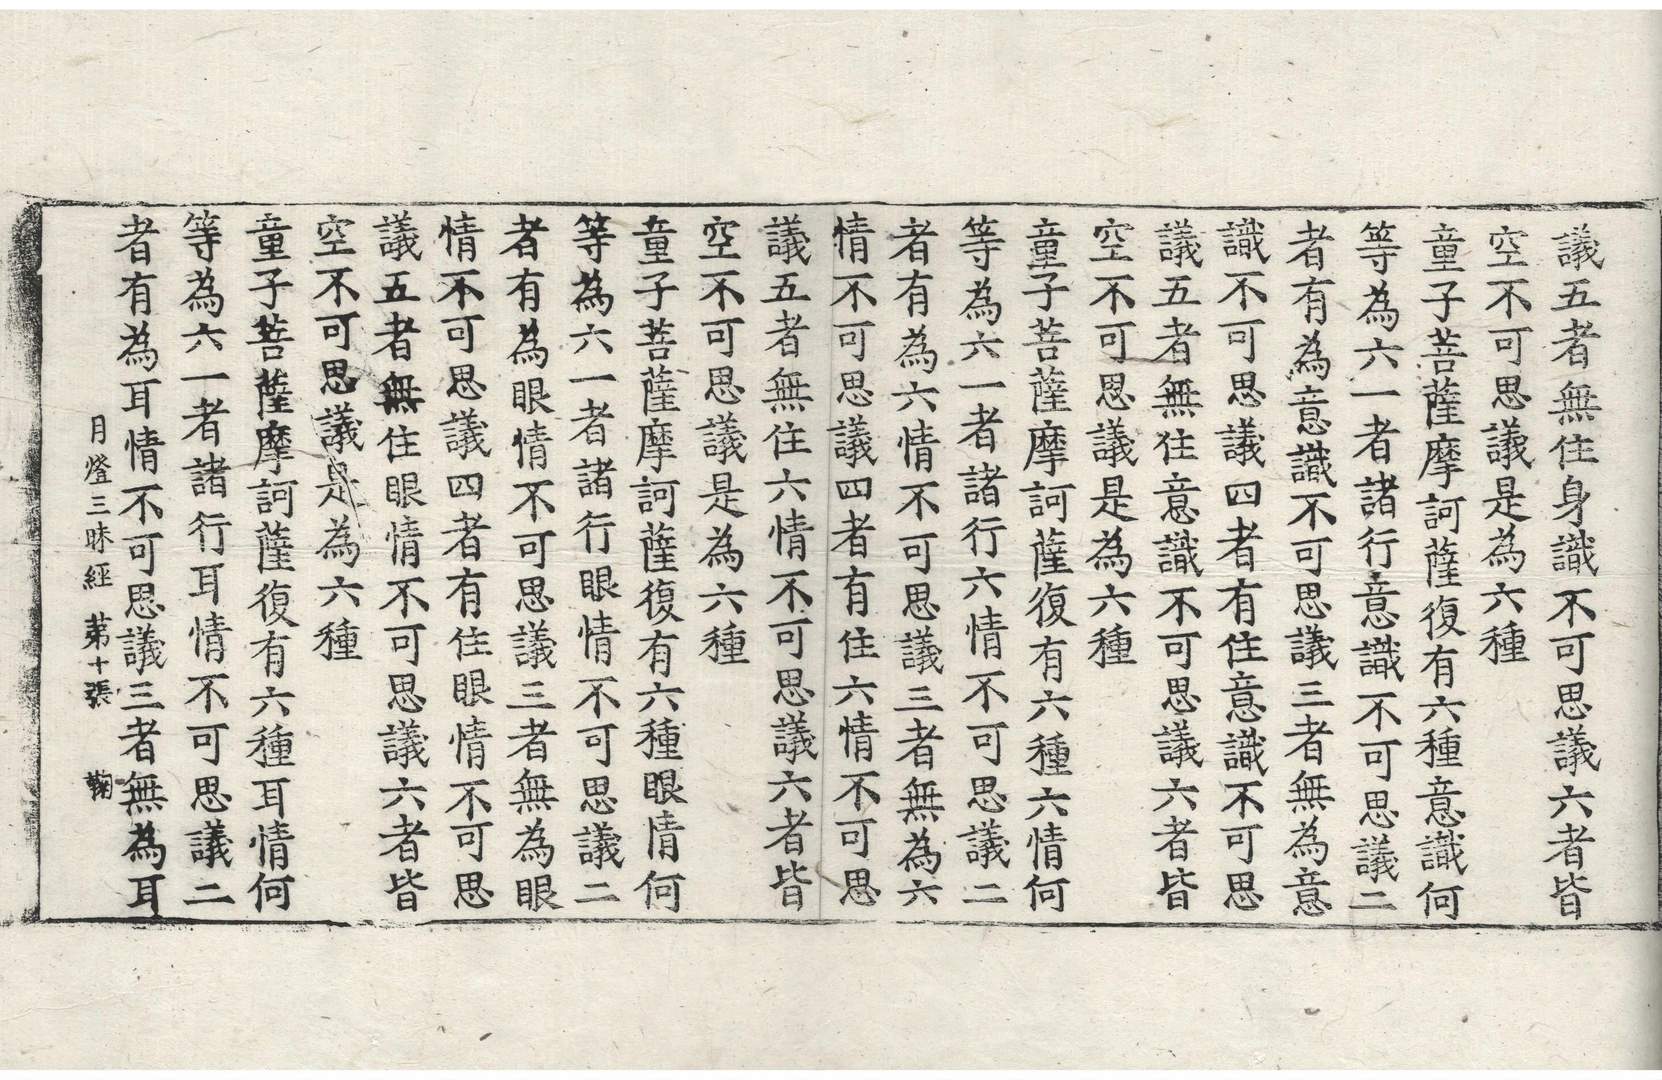 議五者無住身識不可思議六者皆
空不可思議是為六種
童子菩薩摩訶薩復有六種意識何
等為六一者諸行意識不可思議二
者有為意識不可思議三者無為意
識不可思議四者有住意識不可思
議五者無住意識不可思議六者皆
空不可思議是為六種
童子菩薩摩訶薩復有六種六情何
等為六一者諸行六情不可思議二
者有為六情不可思議三者無為六
情不可思議四者有住六情不可思
議五者無住六情不可思議六者皆
空不可思議是為六種
童子菩薩摩訶薩復有六種眼情何
等為六一者諸行眼情不可思議二
者有為眼情不可思議三者無為眼
情不可思議四者有住眼情不可思
議五者無住眼情不可思議六者皆
空不可思議是為六種
童子菩薩摩訶薩復有六種耳情何
等為六一者諸行耳情不可思議二
者有為耳情不可思議三者無為耳
月燈三昧經 苐十張 鞠